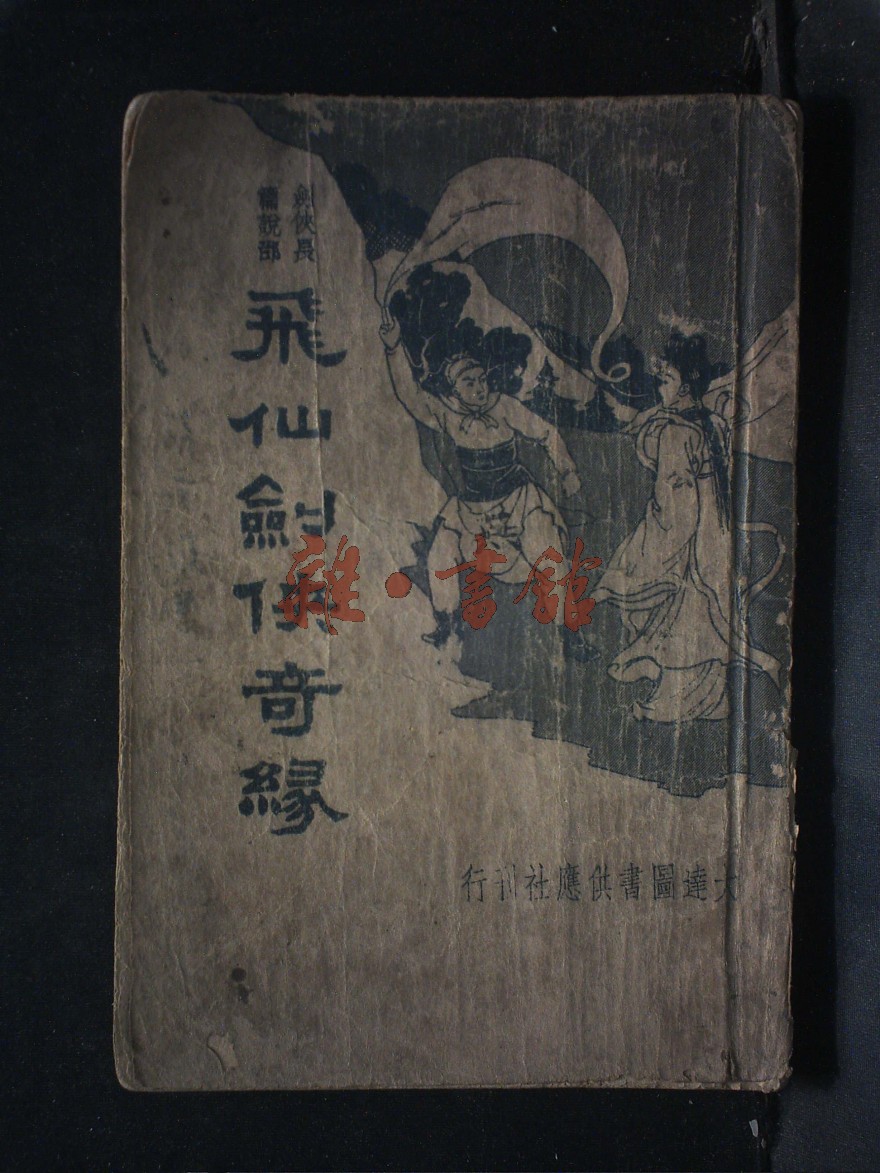 劍俠長
篇說部
飛仙劍俠奇緣
雜·書館
大達圖書供應社刊行